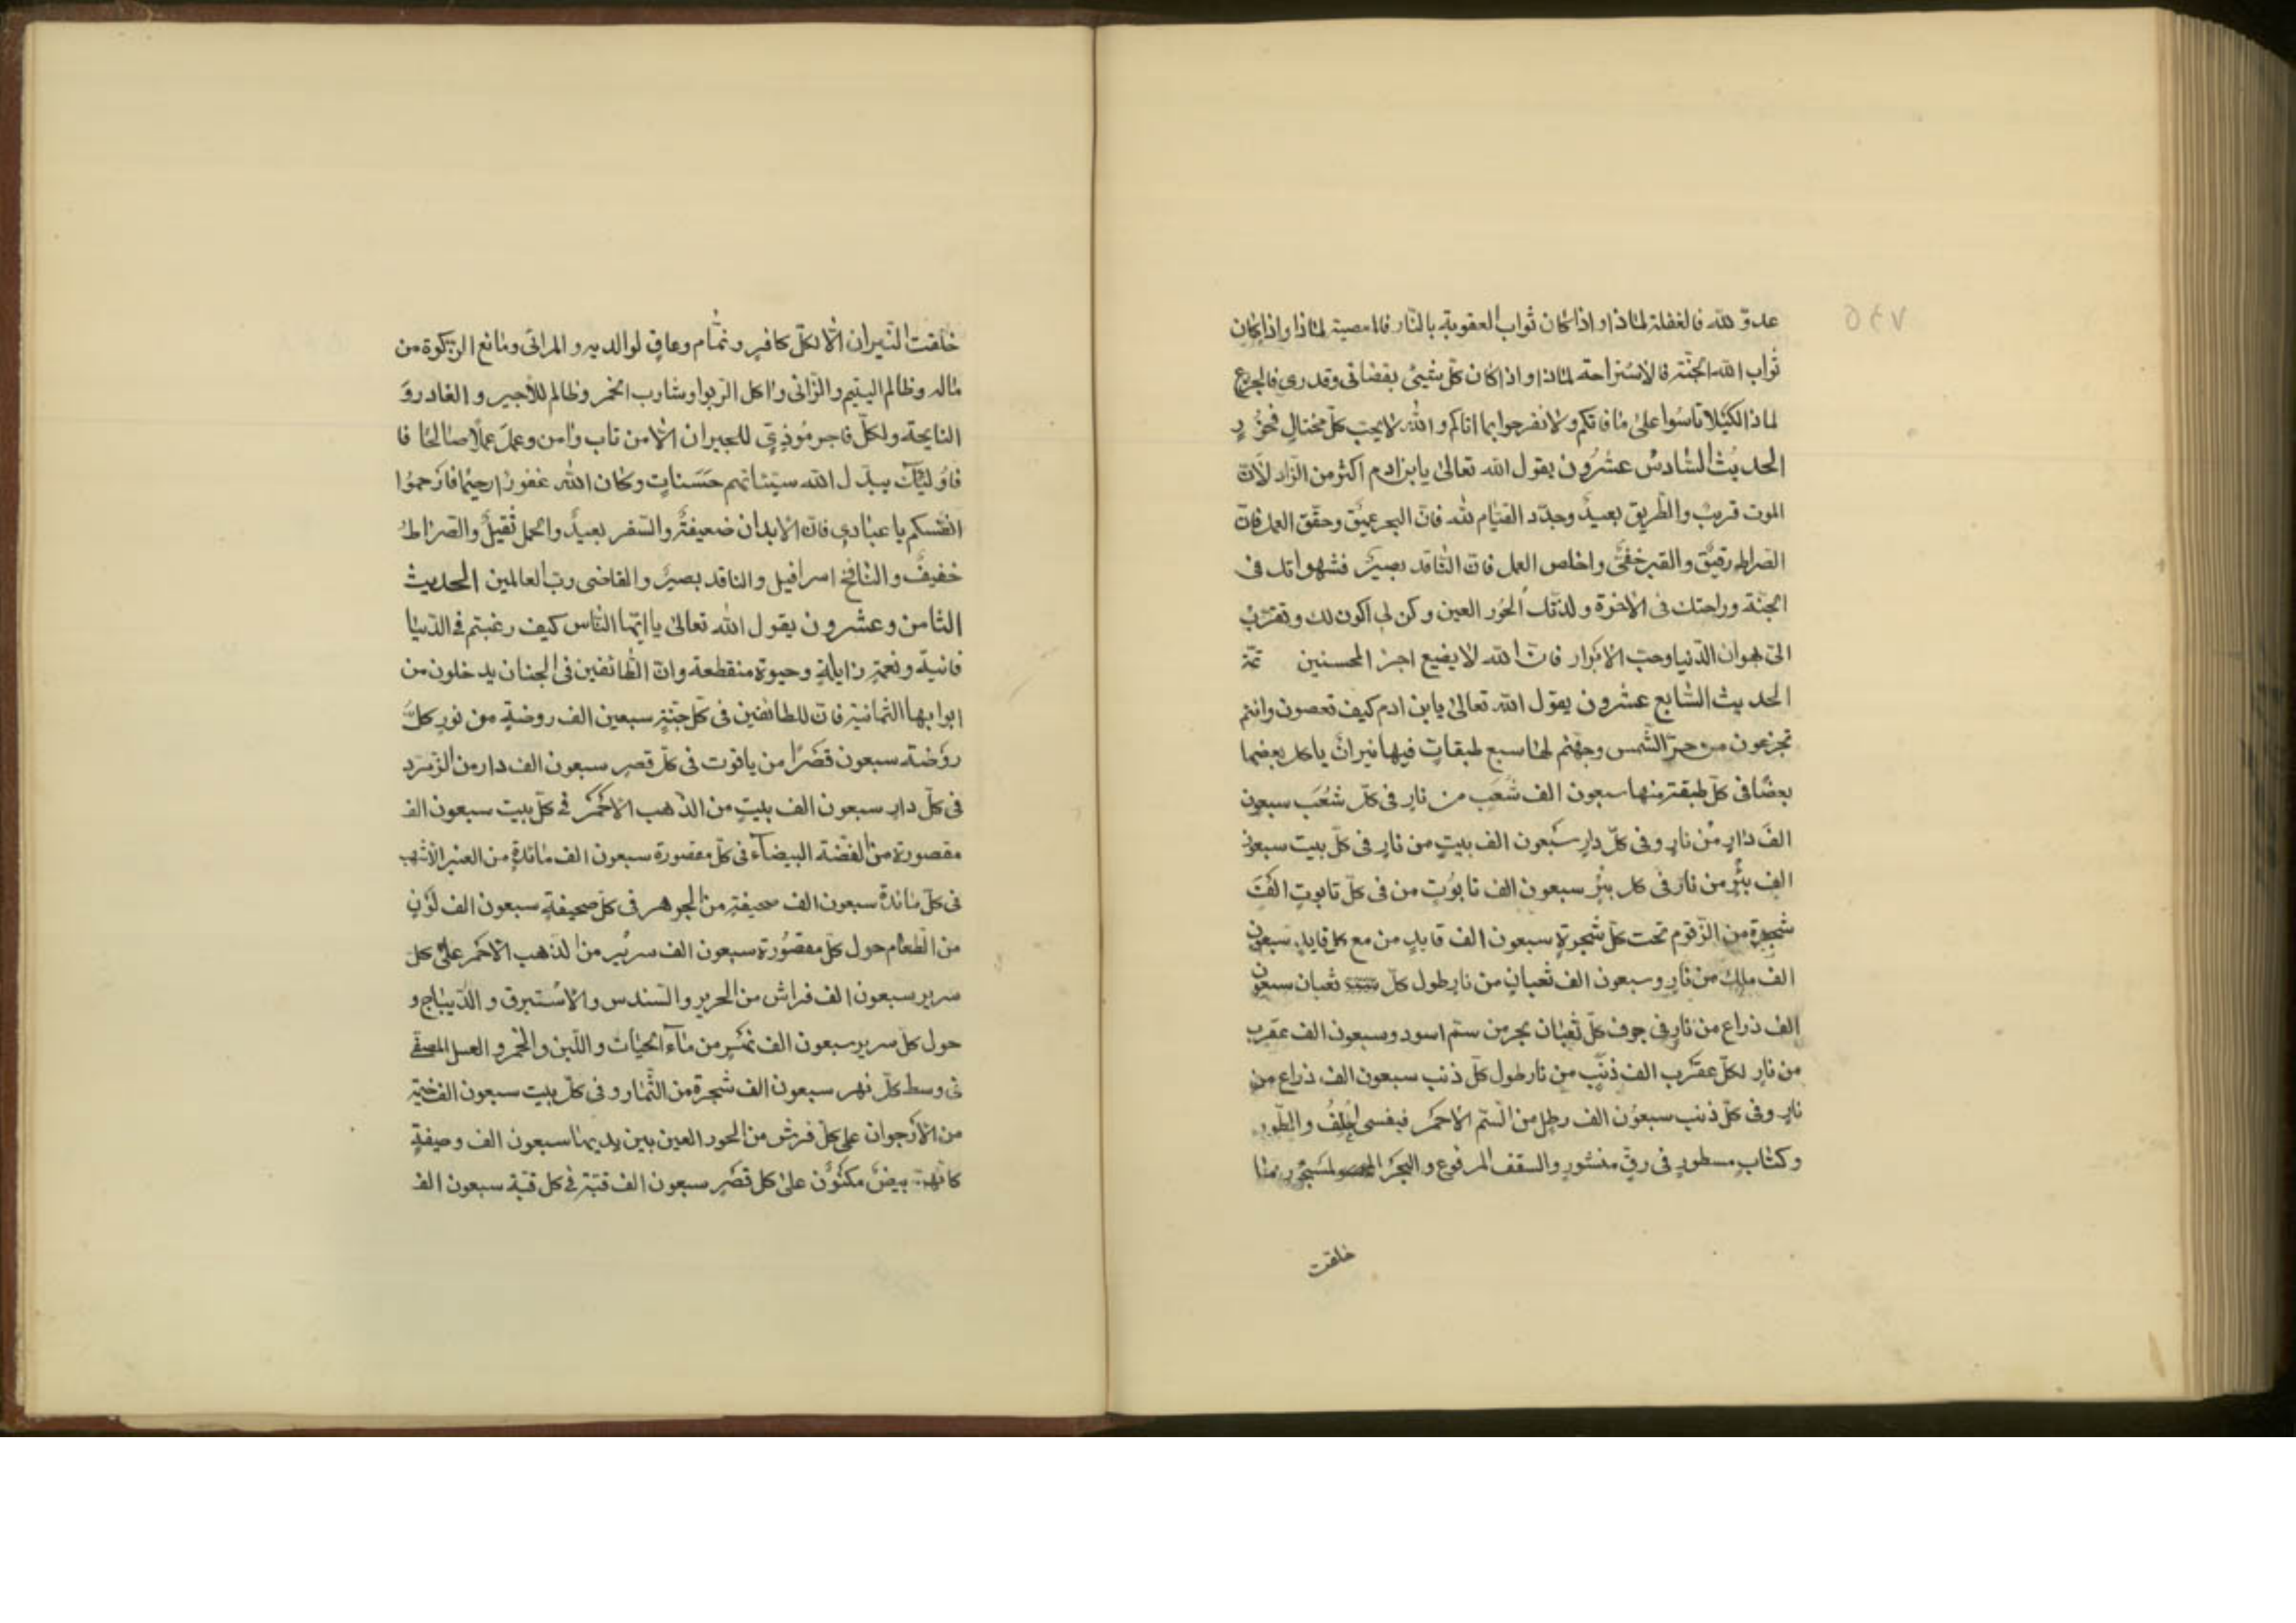 ٥٤٧
عدوّ لله فالغفلة لماذا واذا كان ثواب العقوبة بالنّار فالمعصية لماذا واذا كان
ثواب الله الجنّة فالاستراحة لماذا واذا كان كلّ شيئ بقضائى وقدرى فالجزع
لماذا لكيلا تاسوا على ما فاتكم ولا تفرحوا بما اتاكم والله لا يحبّ كلّ مختالٍ فخورٍ
الحديث السّادس عشرون يقول الله تعالى يابن ادم اكثر من الزّاد لأنّ
الموت قريبٌ والطّريق بعيدٌ وجدّد القيام لله فانّ البحر عميق وحقّق العمل فانّ
الصّراط رقيق والقبر خفىّ واخلص العمل فانّ النّاقد بصيرٌ فشهواتك فى
الجنّة وراحتك فى الآخرة ولذّتك الحور العين وكن لى اكون لك وتقرّب
الىّ بهوان الدّنيا وحبّ الابرار فانّ الله لا يضيع اجر المحسنين
الحديث السّابع عشرون يقول الله تعالى يابن ادم كيف تعصون وانتم
تجزعون من حرّ الشّمس وجهنّم لها سبع طبقاتٍ فيها نيرانٌ ياكل بعضها
بعضًا فى كلّ طبقةٍ منها سبعون الف شُعَب من نارٍ فى كلّ شُعَب سبعون
الف دارٍ من نارٍ وفى كلّ دارٍ سبعون الف بيتٍ من نارٍ فى كلّ بيت سبعون
الف بئرٍ من نار فى كل بئرٍ سبعون الف تابوُت من فى كلّ تابوتٍ الف
شجرة من الزّقوم تحت كلّ شجرةٍ سبعون الف قايدٍ من مع كل قايد سبعون
الف ملك من نارٍ وسبعون الف ثعبانٍ من نارٍ طول كلّ ثعبان سبعون
الف ذراع من نارٍ فى جوف كلّ ثعبان بحر من سمّ اسود وسبعون الف عقرب
من نارٍ لكلّ عقرب الف ذنَب من نار طول كلّ ذنب سبعون الف ذراع من
نارٍ وفى كلّ ذنب سبعوُن الف رطلٍ من السّمّ الاحمَر فبنفسى احلفُ والطّور
وكتابٍ مسطورٍ فى رقّ منشورٍ والسقف المرفوع والبحر المسجور ما
خلقت
خلقت النّيران الّا لكلّ كافرٍ ونمّام وعاقٍ لوالديه والمرائى ومانع الزّكوة من
ماله وظالم اليتيم والزّانى واكل الرّبوا وشارب الخمر وظالم للأجير والغادر وَ
النايحة ولكلّ فاجر مُوذِىٍ للجيران الّا من تاب وامن وعمل عملًا صالحًا فا
فاوُلئِكَ يبدّل الله سيّئاتهم حَسَناتٍ وكان الله غفورًا رحيمًا فارحموُا
انفسكم يا عبادى فانّ الابدان ضعيفةٌ والسّفر بعيدٌ والحمل ثقيلٌ والصّراط
خفيفٌ والنّافخ اسرافيل والناقد بصيرٌ والقاضى ربّ العالمين الحديث
الثّامن وعشرون يقول الله تعالى يا ايّها النّاس كيف رغبتم فى الدّنيا
فانية ونعمةٍ زايلةٍ وحيوة منقطعة وانّ الطّائفين فى الجنان يدخلون من
ابوابها الثّمانية فانّ للطائفين فى كلّ جنّةٍ سبعين الف روضةٍ من نورٍ كلّ
روُضة سبعون قصرًا من ياقوت فى كلّ قصرٍ سبعون الف دار من الزّمرّد
فى كلّ دارٍ سبعون الف بيتٍ من الذّهب الاحمَر فى كلّ بيت سبعون الف
مقصورة من الفضّة البيضآء فى كلّ مقصورة سبعون الف مائدةٍ من العنبر الاشهب
فى كلّ مائدة سبعون الف صحيفةٍ من الجوهر فى كلّ صحيفةٍ سبعون الف لَوْنٍ
من الطّعام حول كلّ مقصُورة سبعون الف سريرٍ من الذّهب الاحمَر على كلّ
سرير سبعون الف فراش من الحرير والسّندس والاستبرق والدّيباج و
حول كلّ سرير سبعون الف نهرٍ من مآء الحيات واللّبن والخمر والعسل المصفّى
فى وسط كلّ نهر سبعون الف شجرة من الثّمار وفى كلّ بيت سبعون الف خيمة
من الأرجوان على كلّ فرش من الحور العين بين يديها سبعون الف وصيفةٍ
كانّهنّ بيضٌ مكنوُن على كل قصرٍ سبعون الف قبّة فى كل قبّة سبعون الف